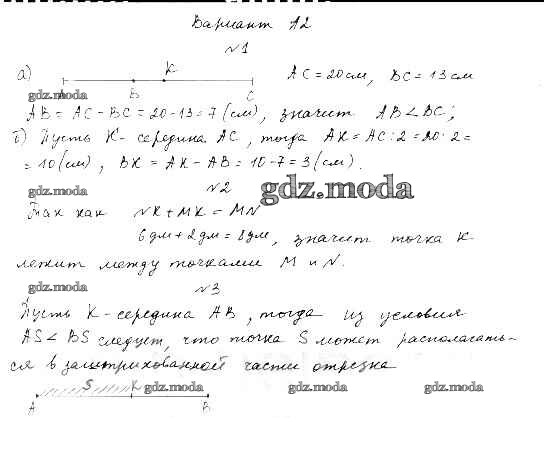 Вариант А2
№1
а) К АС = 20 см, ВС = 13 см
A B C
gdz.moda
АВ = АС - ВС = 20 - 13 = 7 (см), значит АВ < ВС;
б) Пусть К - середина АС, тогда АК = АС : 2 = 20 : 2 =
= 10 (см), ВК = АК - АВ = 10 - 7 = 3 (см).
gdz.moda №2 gdz.moda
Так как NK + MK = MN
6 дм + 2 дм = 8 дм, значит точка К
лежит между точками М и N.
gdz.moda №3
Пусть К - середина АВ, тогда из условия
AS < BS следует, что точка S может располагать-
ся в заштрихованной части отрезка
S K gdz.moda gdz.moda gdz.moda
A B